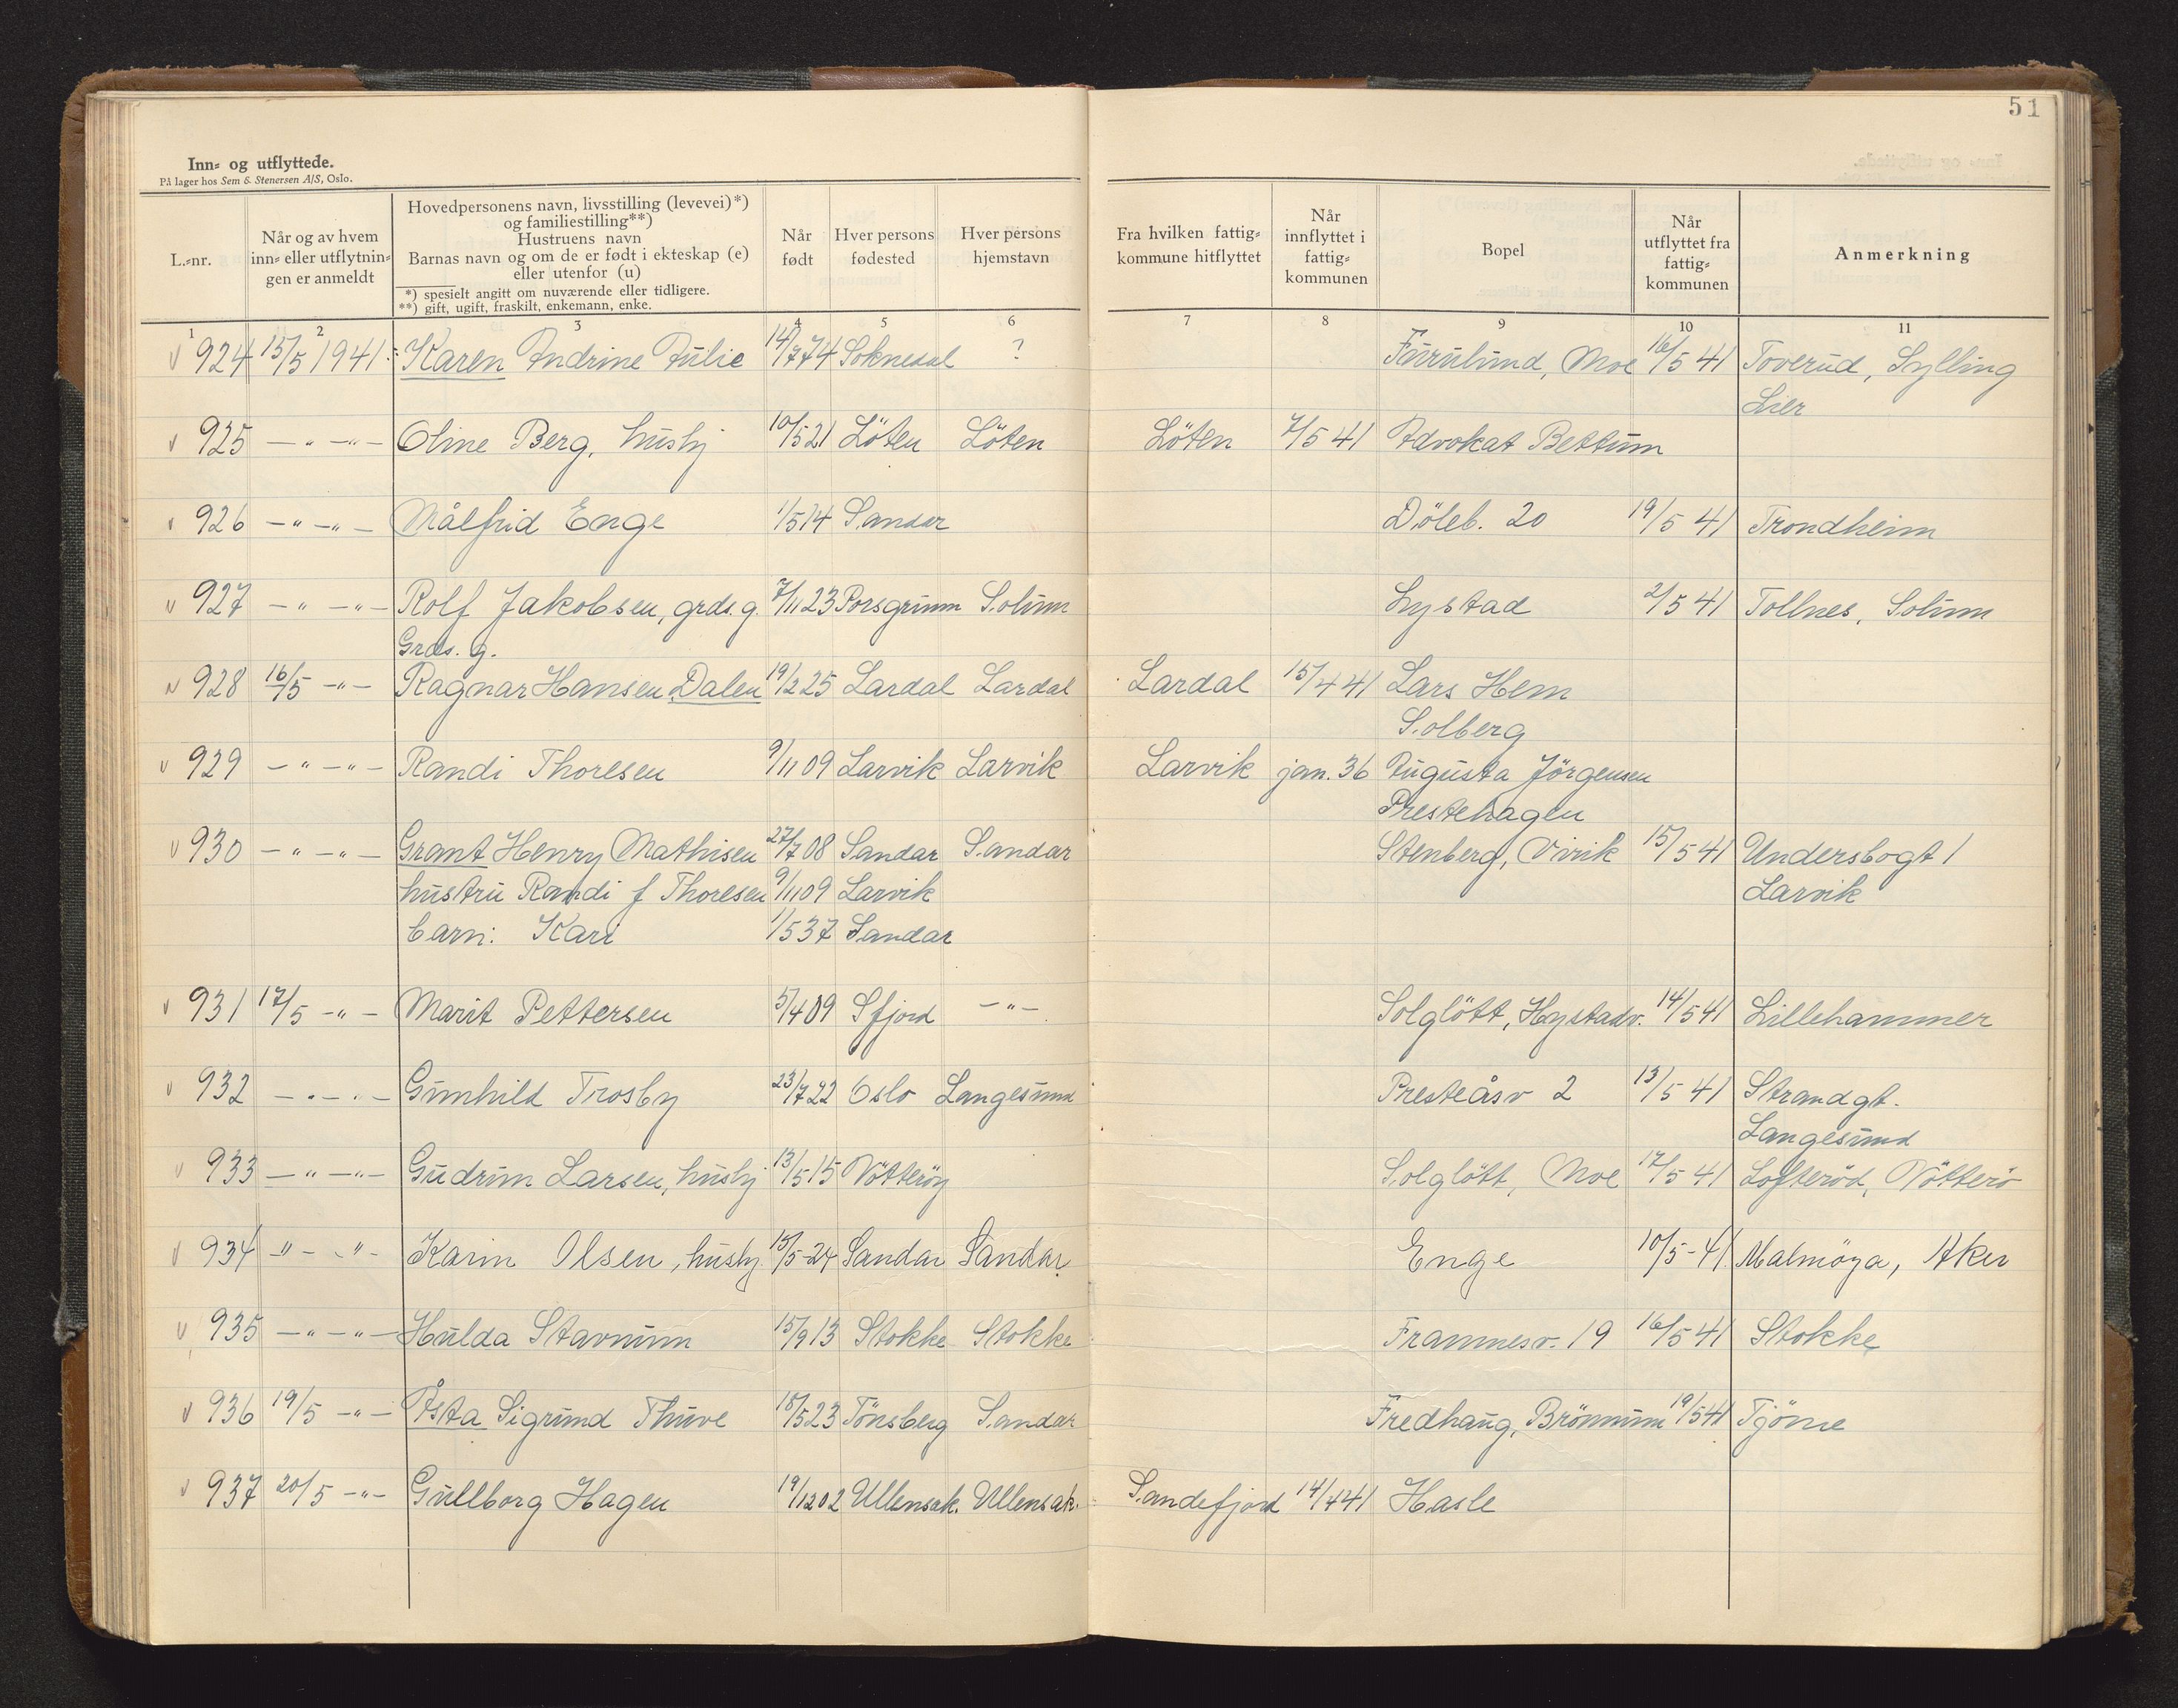 51
Inn= og utflyttede.
På lager hos Sem & Stenersen A/S, Oslo.
L.=nr.
Når og av hvem inn= eller utflytnin= gen er anmeldt
Hovedpersonens navn, livsstilling (levevei)*) og familiestilling**) Hustruens navn Barnas navn og om de er født i ekteskap (e) eller utenfor (u)
*) spesielt angitt om nuværende eller tidligere.
**) gift, ugift, fraskilt, enkemann, enke.
Når født
Hver persons fødested
Hver persons hjemstavn
Fra hvilken fattig= kommune hitflyttet
Når innflyttet i fattig= kommunen
Bopel
Når utflyttet fra fattig= kommunen
Anmerkning
1 2 3 4 5 6 7 8 9 10 11
924 15/5 1941 Karen Andrine Julie 14/7 74 Soknedal ? Furulund, Moe 16/5 41 Toverud, Sylling
Lier
925 -"- -"- Oline Berg, hushj 10/5 21 Löten Löten Löten 7/5 41 Advokat Bettum
926 -"- -"- Målfrid Enge 1/5 14 Sandar Döleb. 20 19/5 41 Trondheim
927 -"- -"- Rolf Jakobsen, grds.g. 7/11 23 Porsgrunn Solum Lystad 2/5 41 Tollnes, Solum
Grds. g.
928 16/5 -"- Ragnar Hansen Dalen 19/2 25 Lardal Lardal Lardal 15/4 41 Lars Hem
Solberg
929 -"- -"- Randi Thoresen 9/11 09 Larvik Larvik Larvik jan. 36 Augusta Jörgensen
Prestehagen
930 -"- -"- Grant Henry Mathisen 27/7 08 Sandar Sandar Stenberg, Virik 15/5 41 Undersbogt 1
hustru Randi f Thoresen 9/11 09 Larvik Larvik
barn: Kari 1/5 37 Sandar
931 17/5 -"- Marit Pettersen 5/4 09 Sfjord -"- Solglött, Hystadv. 14/5 41 Lillehammer
932 -"- -"- Gunhild Trosby 23/7 22 Oslo Langesund Presteåsv 2 13/5 41 Strandgt.
Langesund
933 -"- -"- Gudrun Larsen, hushj 13/5 15 Nötteröy Solglött, Moe 17/5 41 Lofteröd, Nötterö
934 -"- -"- Karin Olsen, hushj. 15/5-24 Sandar Sandar Enge 10/5-41 Malmöya, Aker
935 -"- -"- Hulda Stavnum 15/9 13 Stokke Stokke Framnesv. 19 16/5 41 Stokke
936 19/5 -"- Åsta Sigrund Thuve 18/5 23 Tönsberg Sandar Fredhaug, Brönnum 19/5 41 Tjöme
937 20/5 -"- Gullborg Hagen 19/12 02 Ullensak. Ullensak. Sandefjord 14/4 41 Hasle